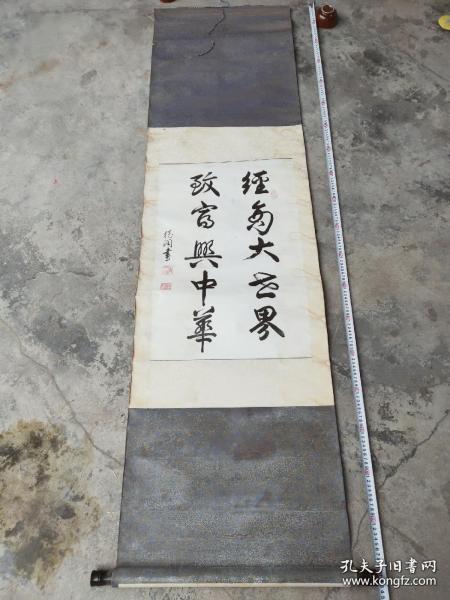 經商大世界
致富興中華
孔夫子旧书网
www.kongfz.com